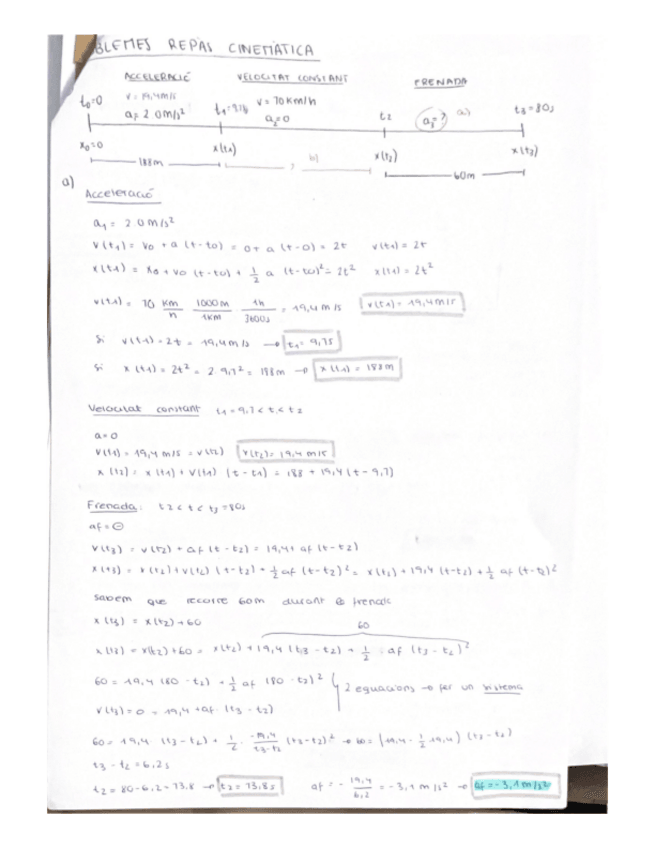 BLEMES REPÀS CINEMÀTICA
ACCELERACIÓ VELOCITAT CONSTANT FRENADA
t0=0 v = 19,4m/s t1=9,7s v = 70Km/h t2 a3=? a) t3=80s
a1= 2.0m/s² a2=0
x0=0 x(t1) b) x(t2) x(t3)
188m ? 60m
a) Acceleració
a1 = 2.0m/s²
v(t1) = v0 + a (t-t0) = 0 + a (t-0) = 2t v(t1) = 2t
x(t1) = x0 + v0 (t-t0) + 1/2 a (t-t0)² = 2t² x(t1) = 2t²
v(t1) = 70 km/h 1000m/1km 1h/3600s = 19,4 m/s v(t1) = 19,4m/s
Si v(t1) = 2t = 19,4m/s → t1 = 9,7s
Si x(t1) = 2t² = 2·9,7² = 188m → x(t1) = 188m
Velocitat constant t1 = 9,7 < t < t2
a=0
v(t1) = 19,4 m/s = v(t2) v(t2) = 19,4 m/s
x(t2) = x(t1) + v(t1) (t-t1) = 188 + 19,4(t-9,7)
Frenada: t2 < t < t3 = 80s
af = ⊖
v(t3) = v(t2) + af (t-t2) = 19,4 + af (t-t2)
x(t3) = x(t2) + v(t2) (t-t2) + 1/2 af (t-t2)² = x(t2) + 19,4 (t-t2) + 1/2 af (t-t2)²
Sabem que recorre 60m durant frenada
x(t3) = x(t2) + 60 60
x(t3) = x(t2) + 60 = x(t2) + 19,4 (t3-t2) + 1/2 · af (t3-t2)²
60 = 19,4 (80-t2) + 1/2 af (80-t2)²
2 equacions → fer un sistema
v(t3) = 0 = 19,4 + af · (t3-t2)
60 = 19,4 · (t3-t2) + 1/2 · -19,4/t3-t2 (t3-t2)² → 60 = (19,4 - 1/2 19,4) (t3-t2)
t3 - t2 = 6,2s
t2 = 80 - 6,2 = 73,8 → t2 = 73,8s af = - 19,4/6,2 = -3,1 m/s² → af = -3,1 m/s²